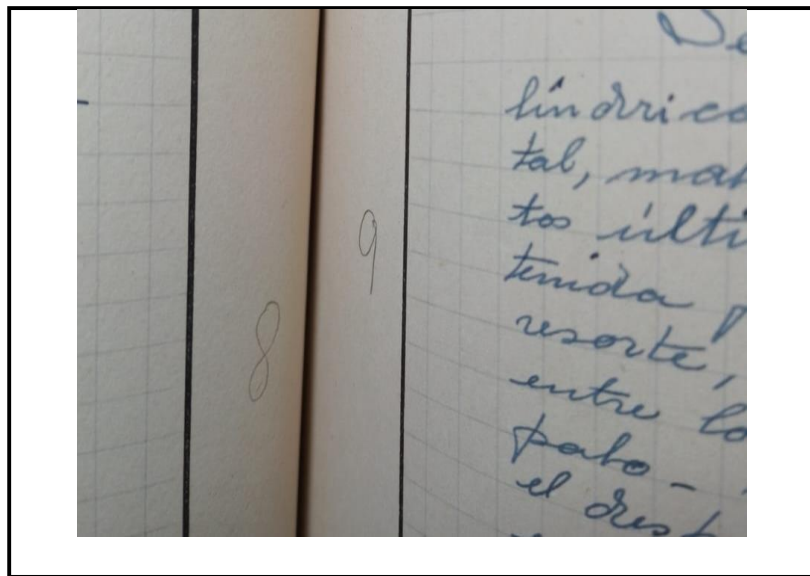 8
9
De
lindrico
tal, mar
tos últi
tenida p
resorte,
entre lo
pato -
el des